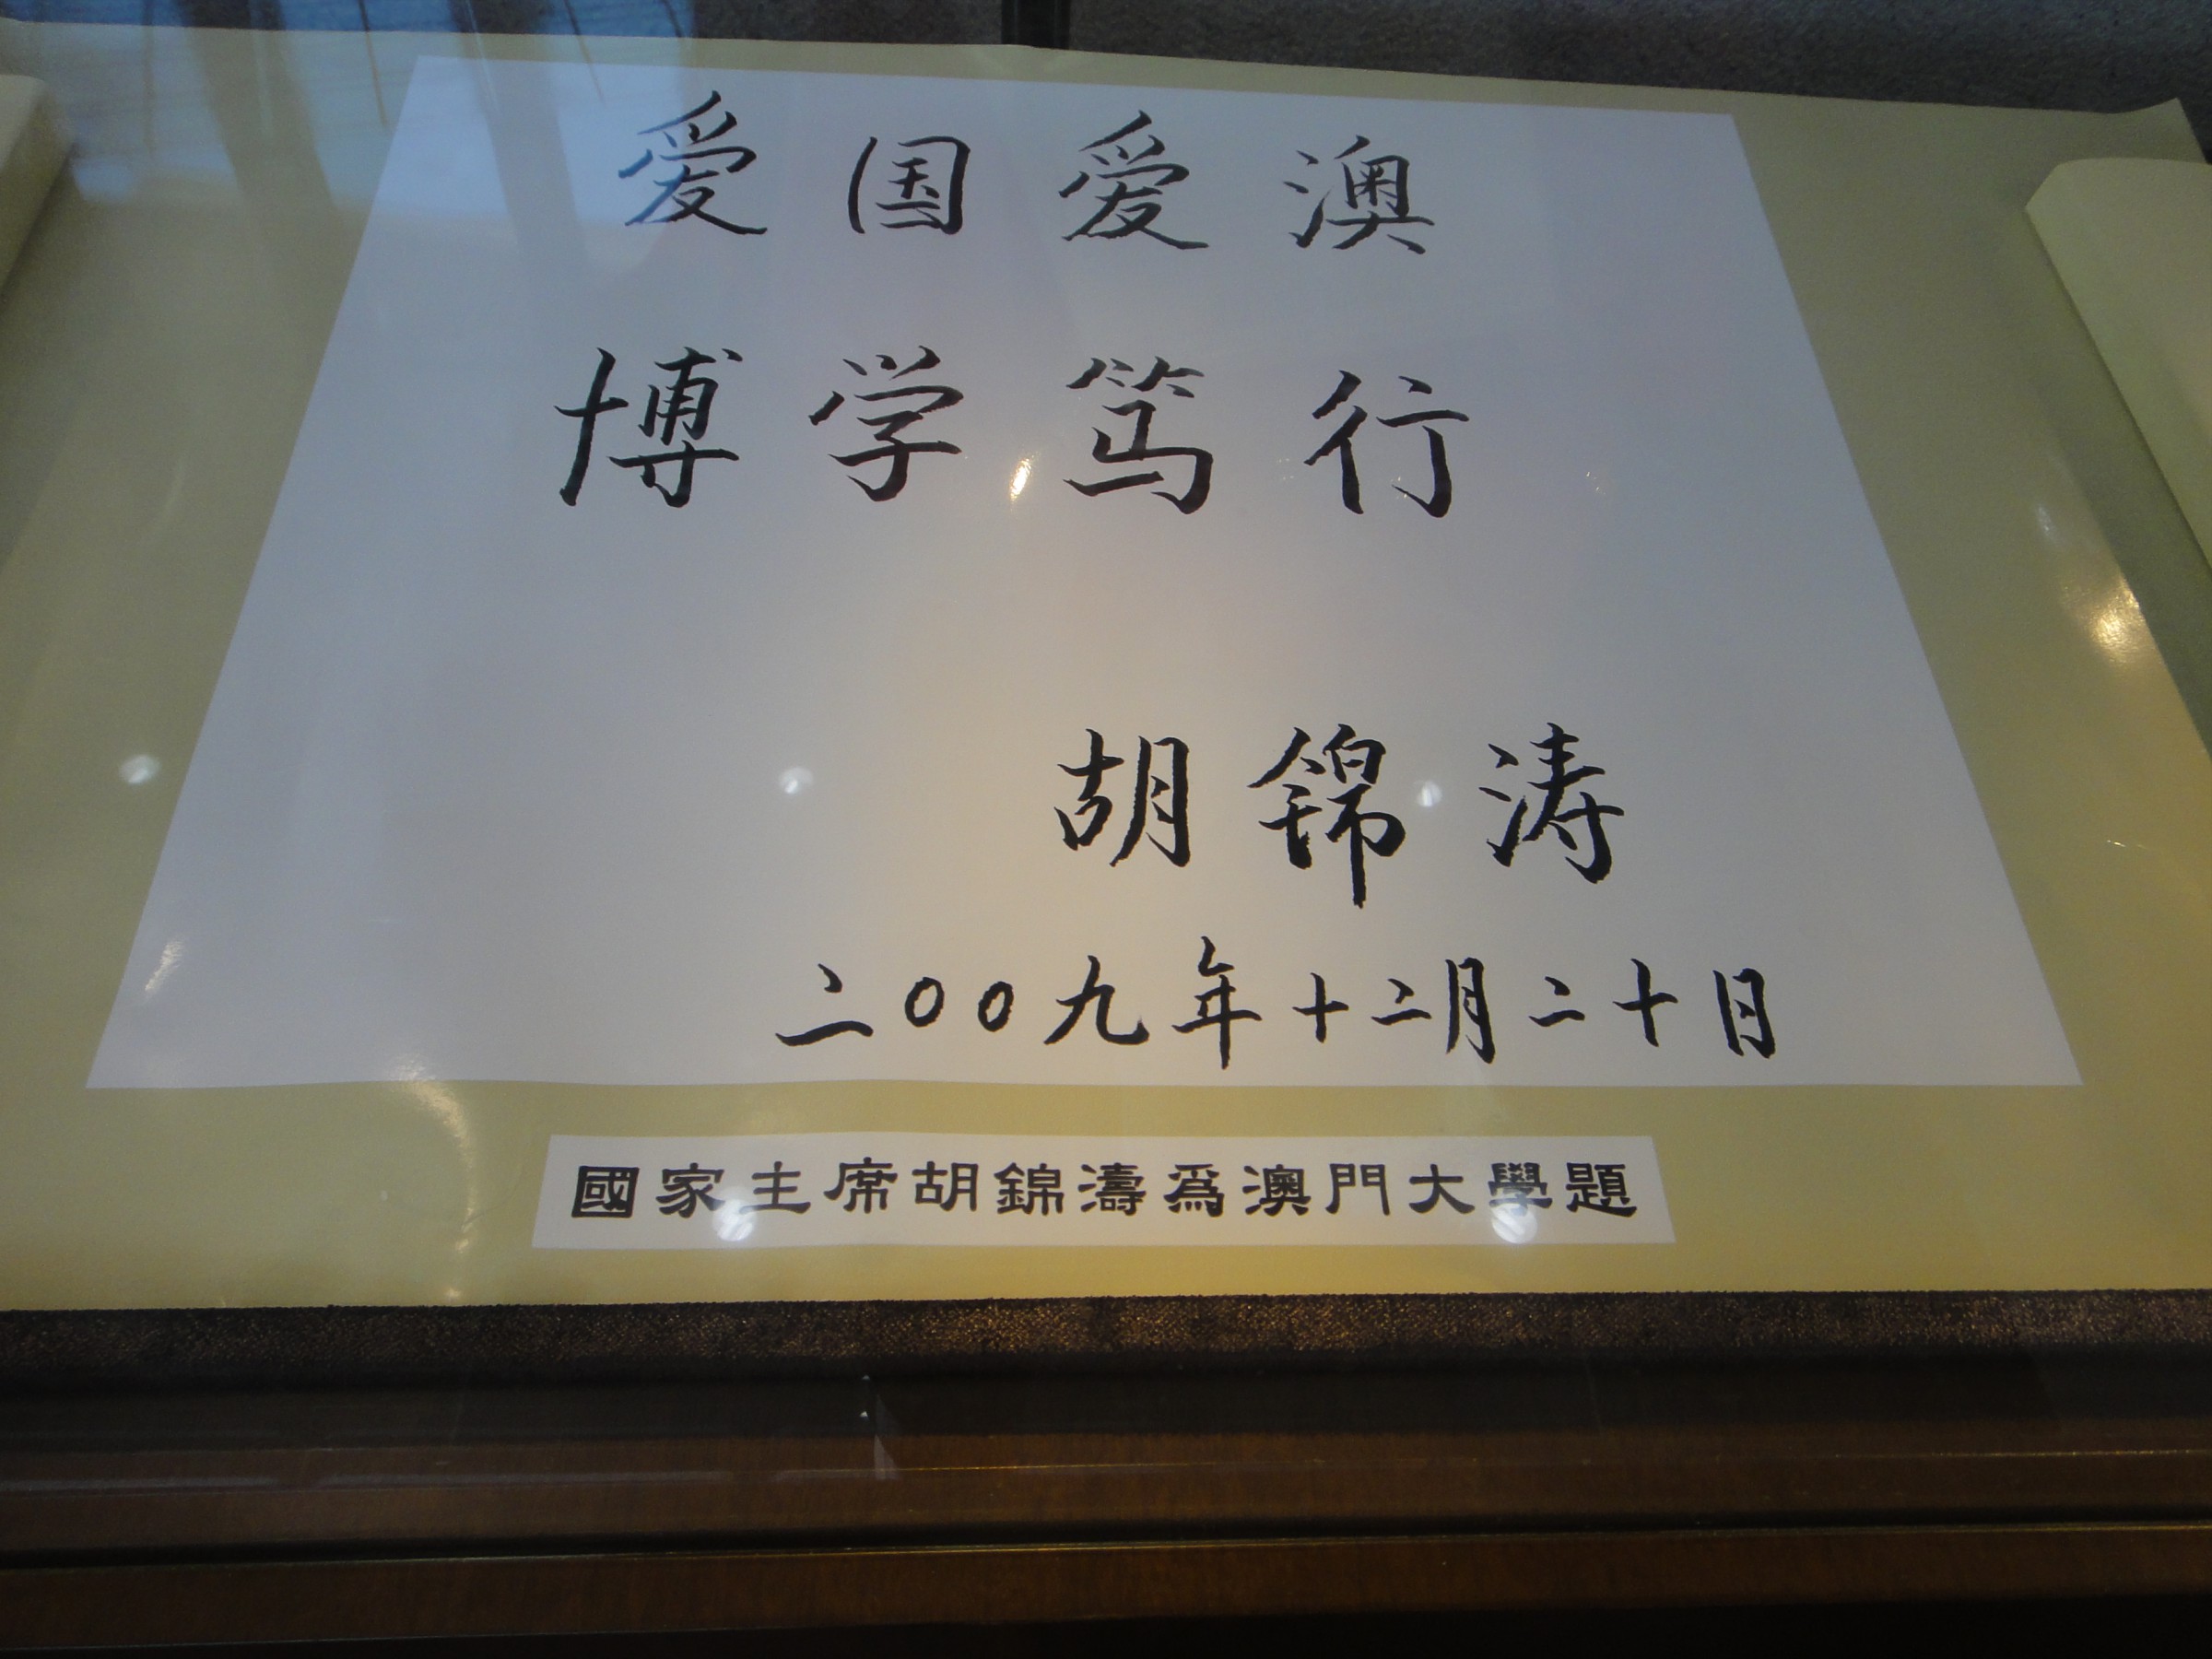 爱国爱澳
博学笃行
胡锦涛
二〇〇九年十二月二十日
國家主席胡錦濤爲澳門大學題